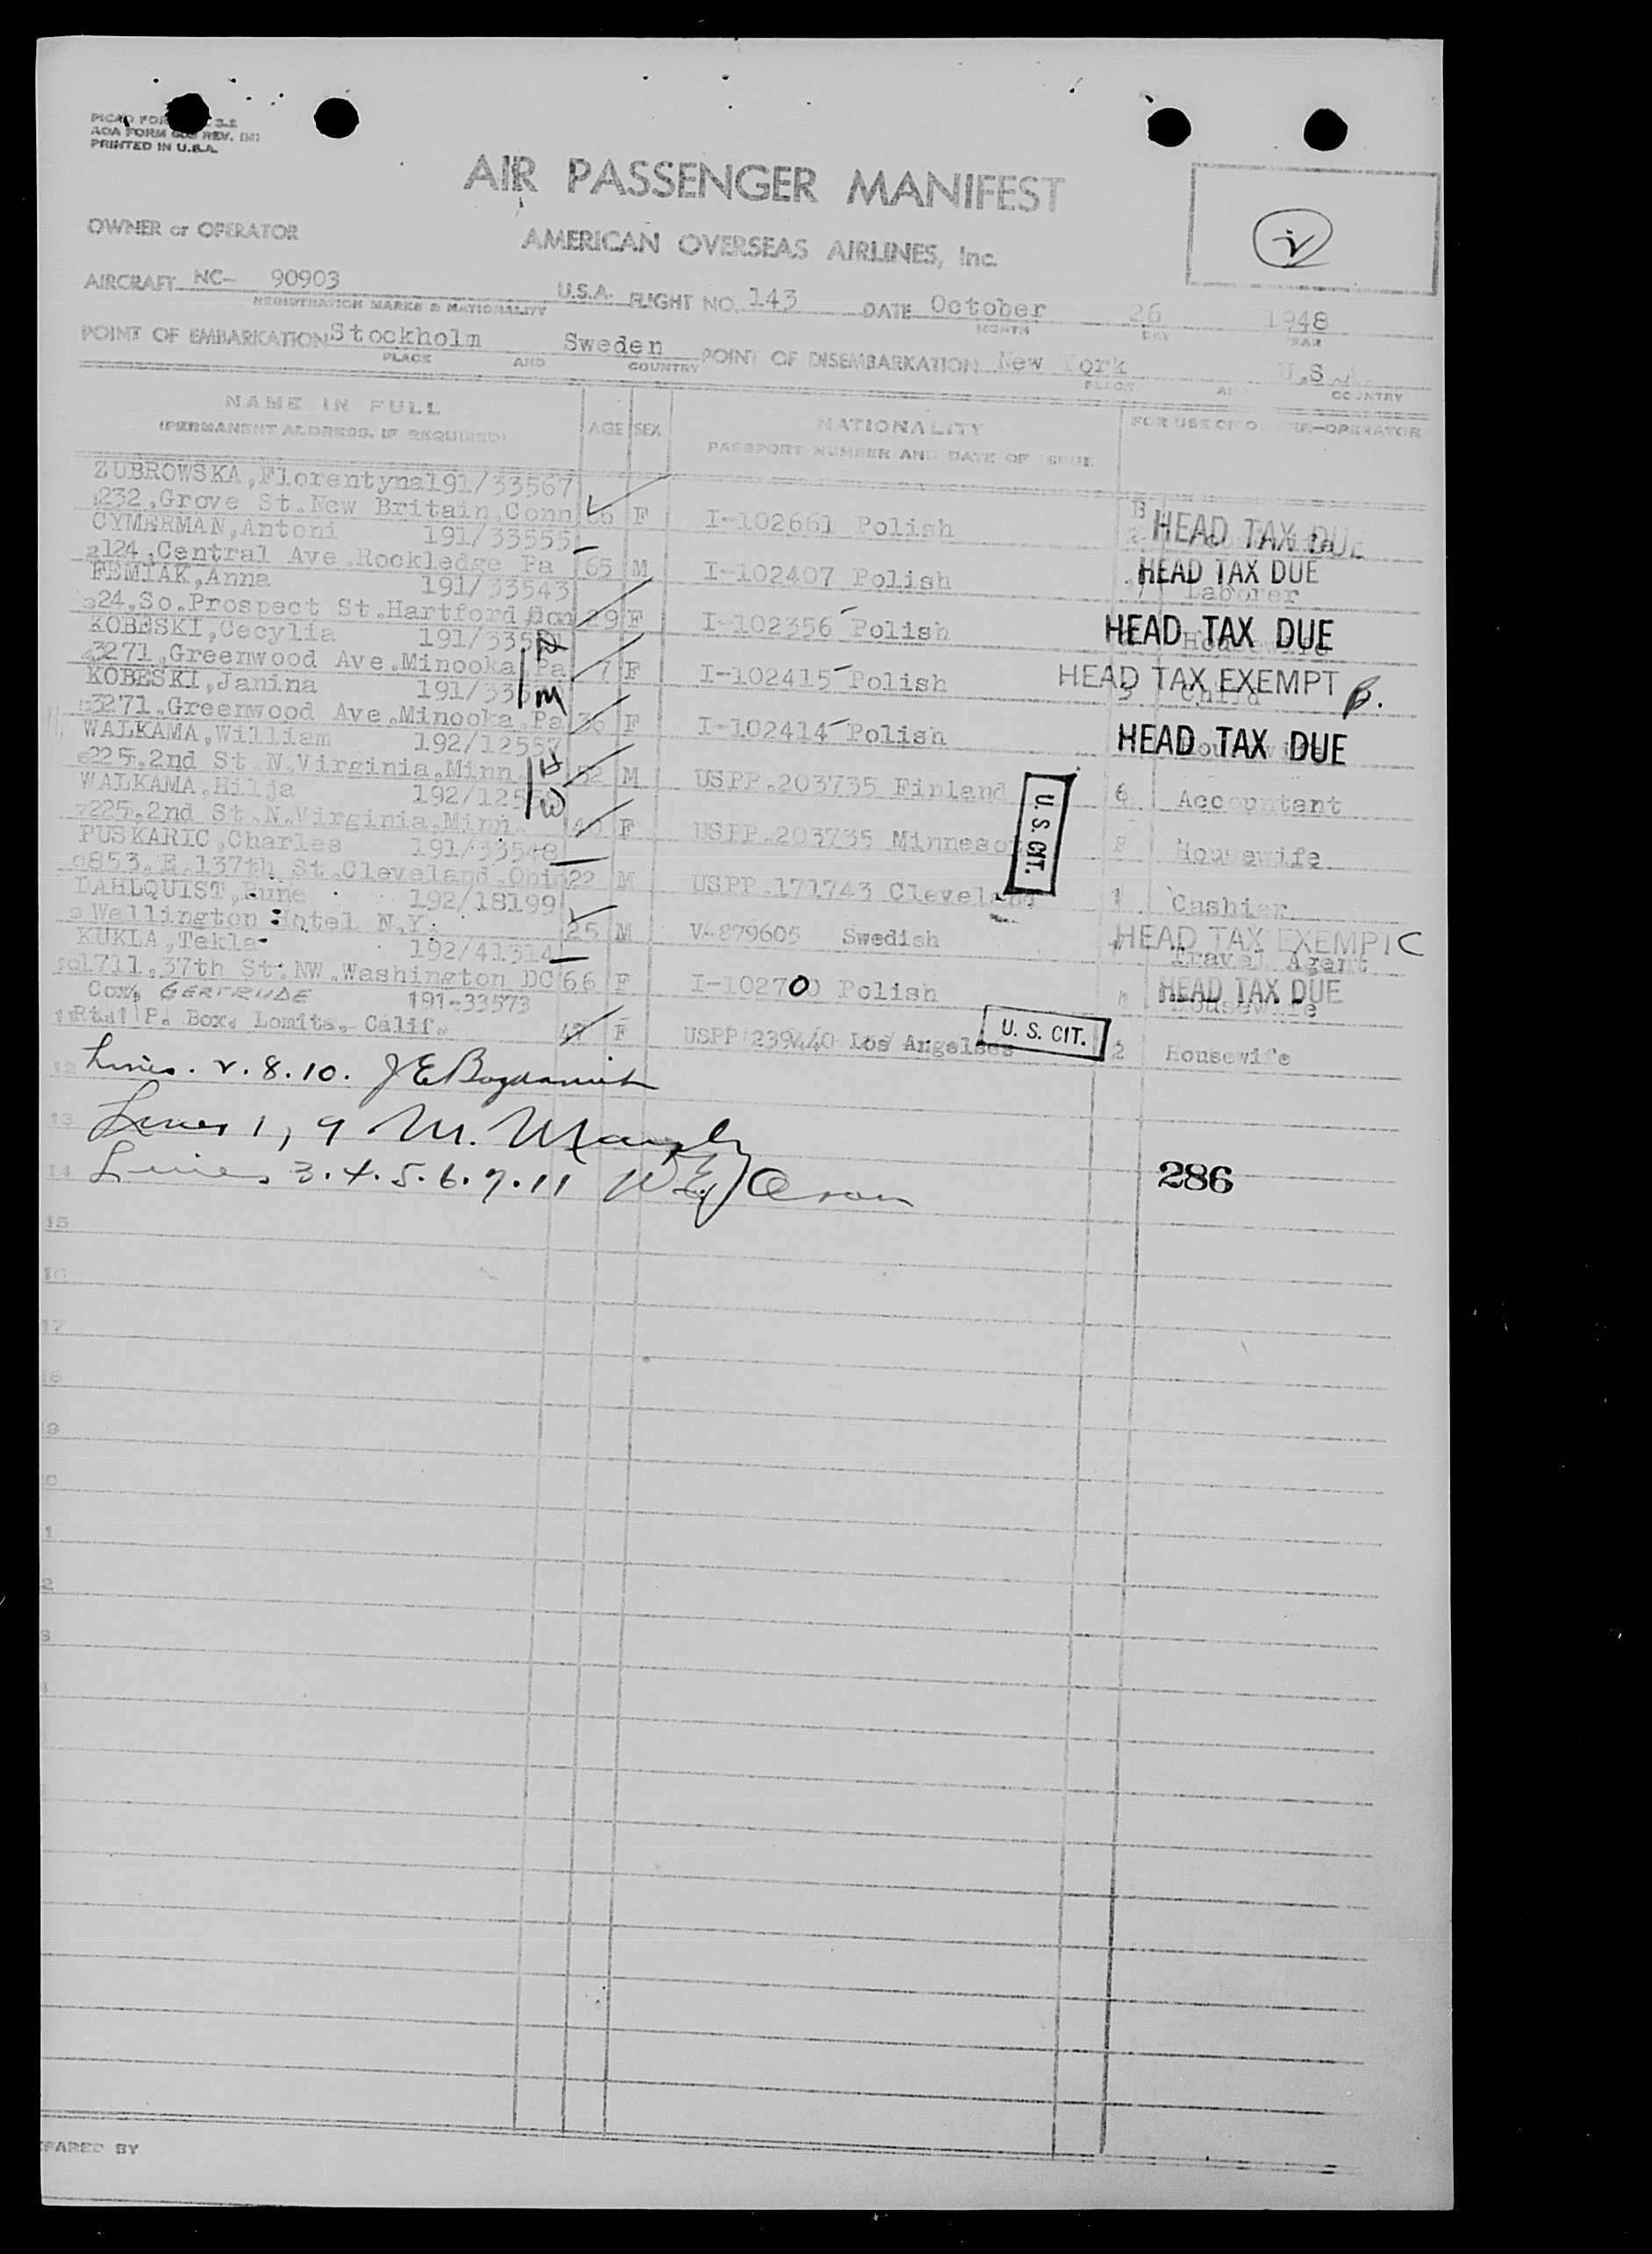 PRINTED IN U.S.A.
AIR PASSENGER MANIFEST
OWNER or OPERATOR AMERICAN OVERSEAS AIRLINES, Inc.
AIRCRAFT NC- 90903 U.S.A. FLIGHT NO. 143 DATE October 26 1948
REGISTRATION MARKS & NATIONALITY MONTH DAY YEAR
POINT OF EMBARKATION Stockholm Sweden POINT OF DISEMBARKATION New York U.S.A.
PLACE AND COUNTRY PLACE AND COUNTRY
NAME IN FULL AGE SEX NATIONALITY FOR USE OF OWNER-OPERATOR
(PERMANENT ADDRESS, IF REQUIRED) PASSPORT NUMBER AND DATE OF ISSUE
ZUBROWSKA,Florentyna 191/33567
1 232,Grove St.New Britain,Conn F I-102661 Polish HEAD TAX DUE
CYMERMAN,Antoni 191/33555
2 124,Central Ave.Rockledge Pa 65 M I-102407 Polish HEAD TAX DUE
Laborer
FEMIAK,Anna 191/33543
3 24,So.Prospect St.Hartford 29 F I-102356 Polish HEAD TAX DUE
KOBESKI,Cecylia
4 3271,Greenwood Ave.Minooka Pa 7 F I-102415 Polish HEAD TAX EXEMPT B.
Child
KOBESKI,Janina M
5 3271,Greenwood Ave.Minooka,Pa 36 F I-102414 Polish HEAD TAX DUE
WALKAMA,William 192/12557
6 225,2nd St.N.Virginia,Minn. H 52 M USPP.203735 Finland U.S.CIT. 6 Accountant
WALKAMA,Hilja W
7 225,2nd St.N.Virginia,Minn. 40 F USPP.203735 Housewife
PUSKARIC,Charles 191/33548
8 853.E.137th St.Cleveland,Ohio 22 M USPP.171743 Cleveland 1 Cashier
DAHLQUIST,Rune 192/18199
9 Wellington Hotel N.Y. 25 M V-879605 Swedish HEAD TAX EXEMPT C
Travel Agent
KUKLA,Tekla 192/41314
10 1711.37th St.NW.Washington DC 66 F I-102700 Polish HEAD TAX DUE
Housewife
Cox, GERTRUDE 191-33573
11 Rt.1 P. Box. Lomita. Calif. F USPP 239440 Los Angelses U. S. CIT. 2 Housewife
12 Lines. 2. 8. 10.
13 Lines 1, 9 M.
14 Lines 3. 4. 5. 6. 7. 11
286
15
16
17